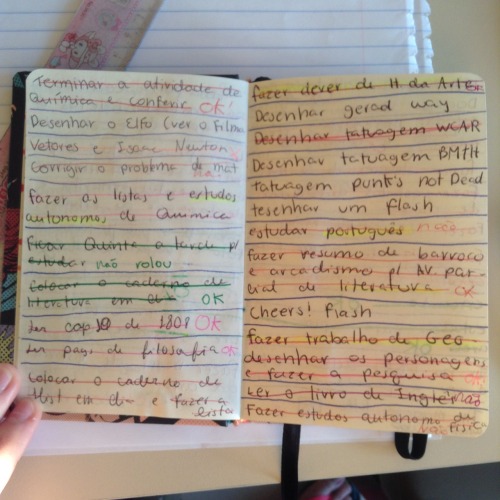 Terminar a atividade de
Química e conferir OK!
Desenhar o Elfo (ver o Filme
Vetores e Isaac Newton
Corrigir o problema de mat
Fazer as listas e estudos
autonomos de Quimica
Ficar Quinta a tarde p/
estudar não rolou
Colocar o caderno de
literatura em dia OK
Ler cap de 1808 OK
Ler pags de filosofia OK
Colocar o caderno de
Hist em dia e fazer a
lista
fazer dever de H da Arte
Desenhar gerad way
Desenhar tatuagem WCAR
Desenhar tatuagem BMTH
tatuagem punk's not Dead
desenhar um flash
estudar português não
fazer resumo de barroco
e arcadismo p/ AV. par-
cial de literatura OK
Cheers! flash
fazer trabalho de Geo.
desenhar os personagens
e fazer a pesquisa OK
Ler o livro de Ingles não
Fazer estudos autonomo de
Não física